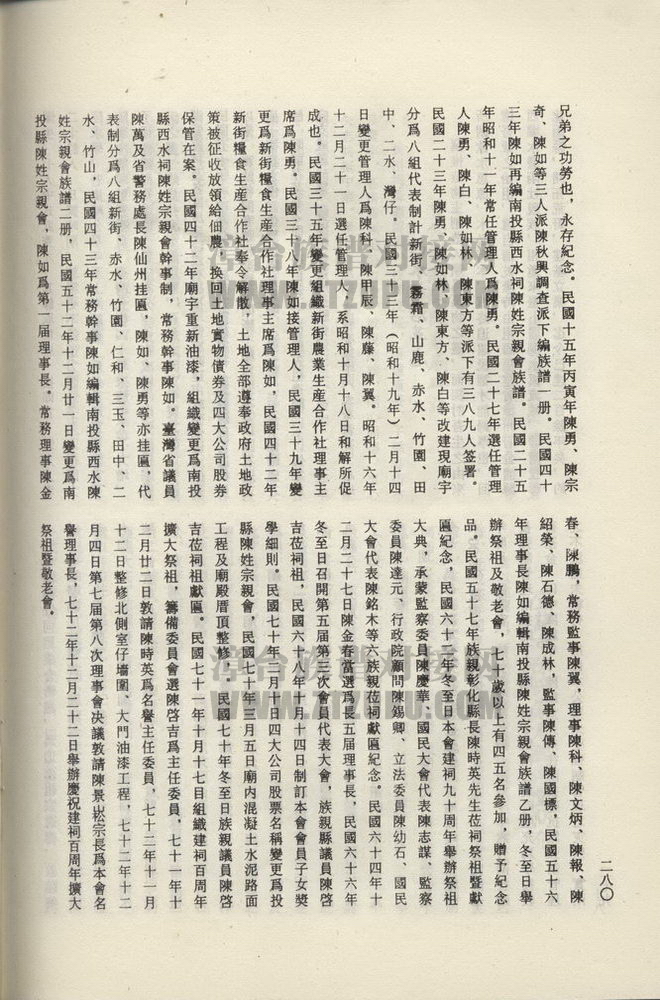 兄弟之功勞也，永存紀念。民國十五年丙寅年陳勇、陳宗
奇、陳如等三人派陳秋興調查派下編族譜一册。民國四十
三年陳如再編南投縣西水祠陳姓宗親會族譜。民國二十五
年昭和十一年常任管理人爲陳勇。民國二十七年選任管理
人陳勇、陳白、陳如林、陳東方等派下有三八九人簽署。
民國二十三年陳勇、陳如林、陳東方、陳白等改建現廟宇
分爲八組代表制計新街、霧霜、山鹿、赤水、竹園、田
中、二水、灣仔。民國三十三年（昭和十九年）二月十四
日變更管理人爲陳科、陳甲辰、陳藤、陳翼。昭和十六年
十二月二十一日選任管理人，系昭和十月十八日和解所促
成也。民國三十五年變更組織新街農業生産合作社理事主
席爲陳勇。民國三十八年陳如接管理人，民國三十九年變
更爲新街糧食生産合作社理事主席爲陳如，民國四十二年
新街糧食生産合作社奉令解散，土地全部遵奉政府土地政
策被征收放領給佃農，換回土地實物債券及四大公司股券
保管在案。民國四十二年廟宇重新油漆，組織變更爲南投
縣西水祠陳姓宗親會幹事制，常務幹事陳如。臺灣省議員
陳萬及省警務處長陳仙州挂匾，陳如、陳勇等亦挂匾，代
表制分爲八組新街、赤水、竹園、仁和、三玉、田中、二
水、竹山，民國四十三年常務幹事陳如編輯南投縣西水陳
姓宗親會族譜二册，民國五十二年十二月廿一日變更爲南
投縣陳姓宗親會，陳如爲第一届理事長。常務理事陳金
春、陳鵬，常務監事陳翼，理事陳科、陳文炳、陳報、陳
紹榮、陳石德、陳成林，監事陳傳、陳國標，民國五十六
年理事長陳如編輯南投縣陳姓宗親會族譜乙册，冬至日舉
辦祭祖及敬老會，七十歲以上有四五名參加，贈予紀念
品。民國五十七年族親彰化縣長陳時英先生莅祠祭祖暨獻
匾紀念，民國六十三年冬至日本會建祠九十周年舉辦祭祖
大典，承蒙監察委員陳慶華、國民大會代表陳志謀、監察
委員陳達元、行政院顧問陳錫卿、立法委員陳幼石、國民
大會代表陳銘木等六族親莅祠獻匾紀念。民國六十四年十
二月二十七日陳金春當選爲長五届理事長，民國六十六年
冬至日召開第五届第三次會員代表大會，族親縣議員陳啓
吉莅祠祖，民國六十八年十月十四日制訂本會會員子女奬
學細則。民國七十年二月十日四大公司股票名稱變更爲投
縣陳姓宗親會，民國七十年三月五日廟内混凝土水泥路面
工程及廟殿厝頂整修，民國七十年冬至日族親議員陳啓
吉莅祠祖獻匾。民國七十一年十月十七目組織建祠百周年
擴大祭祖，籌備委員會選陳啓吉爲主任委員，七十一年十
二月廿二日敦請陳時英爲名譽主任委員，七十二年十一月
十二日整修北側室仔墻圍、大門油漆工程，七十二年十二
月四日第七届第八次理事會决議敦請陳景崧宗長爲本會名
譽理事長，七十二年十二月二十二日舉辦慶祝建祠百周年擴大
祭祖暨敬老會。
二八〇